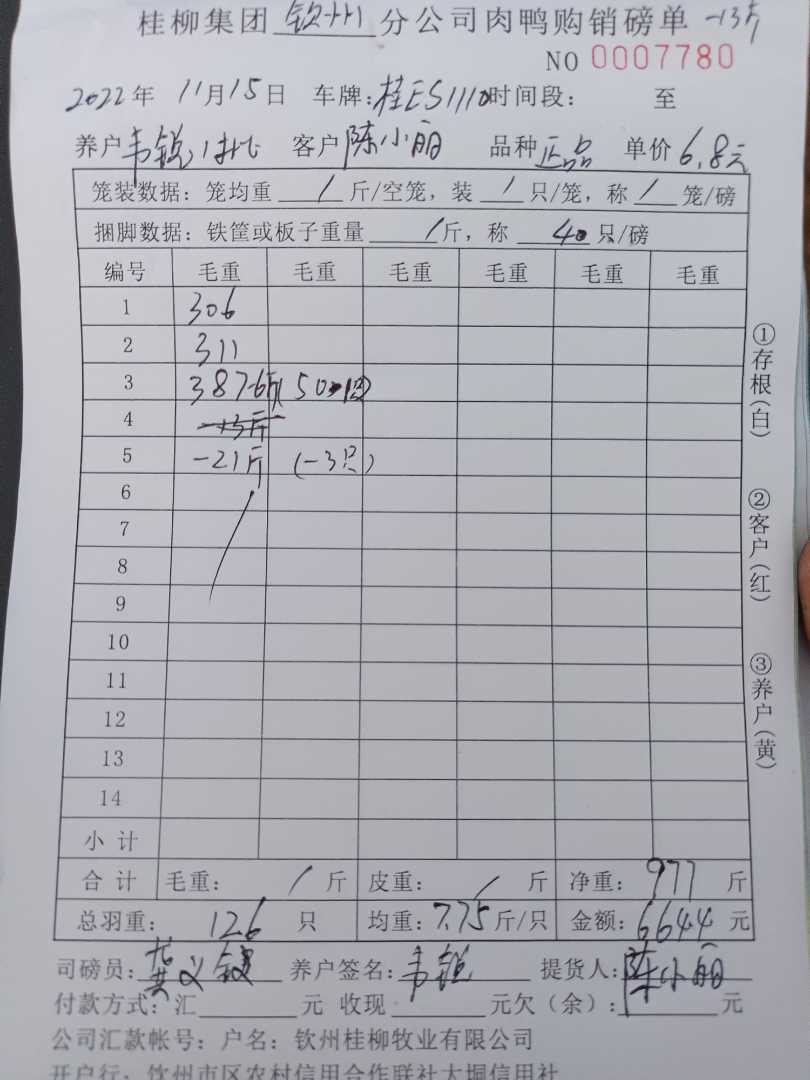 桂柳集团 钦州 分公司肉鸭购销磅单 -13斤
NO 0007780
2022年 11月15日 车牌:桂ES1110时间段: 至
养户 韦锐 客户 陈小丽 品种 正品 单价 6.8元
笼装数据:笼均重 / 斤/空笼,装 / 只/笼,称 / 笼/磅
捆脚数据:铁筐或板子重量 / 斤,称 40 只/磅
编号 毛重 毛重 毛重 毛重 毛重 毛重
1 306
2 311
3 387-6斤(50只)
4 -13斤
5 -21斤 (-3只)
6
7
8
9
10
11
12
13
14
小计
合计 毛重: / 斤 皮重: / 斤 净重: 977 斤
总羽重: 126 只 均重: 7.75 斤/只 金额: 6644 元
司磅员: 养户签名: 韦锐 提货人: 陈小丽
付款方式:汇 元 收现 元欠(余): 元
公司汇款帐号:户名:钦州桂柳牧业有限公司
开户行:钦州市区农村信用合作联社大垌信用社
①存根(白)
②客户(红)
③养户(黄)